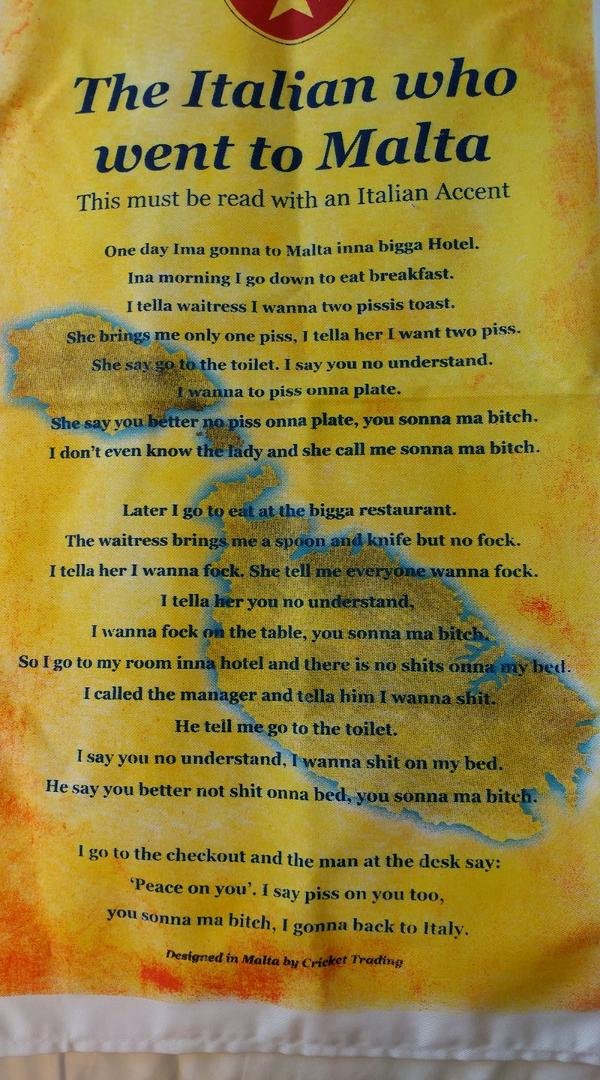 The Italian who
went to Malta
This must be read with an Italian Accent
One day Ima gonna to Malta inna bigga Hotel.
Ina morning I go down to eat breakfast.
I tella waitress I wanna two pissis toast.
She brings me only one piss, I tella her I want two piss.
She say go to the toilet. I say you no understand.
I wanna to piss onna plate.
She say you better no piss onna plate, you sonna ma bitch.
I don't even know the lady and she call me sonna ma bitch.
Later I go to eat at the bigga restaurant.
The waitress brings me a spoon and knife but no fock.
I tella her I wanna fock. She tell me everyone wanna fock.
I tella her you no understand,
I wanna fock on the table, you sonna ma bitch.
So I go to my room inna hotel and there is no shits onna my bed.
I called the manager and tella him I wanna shit.
He tell me go to the toilet.
I say you no understand, I wanna shit on my bed.
He say you better not shit onna bed, you sonna ma bitch.
I go to the checkout and the man at the desk say:
‘Peace on you’. I say piss on you too,
you sonna ma bitch, I gonna back to Italy.
Designed in Malta by Cricket Trading